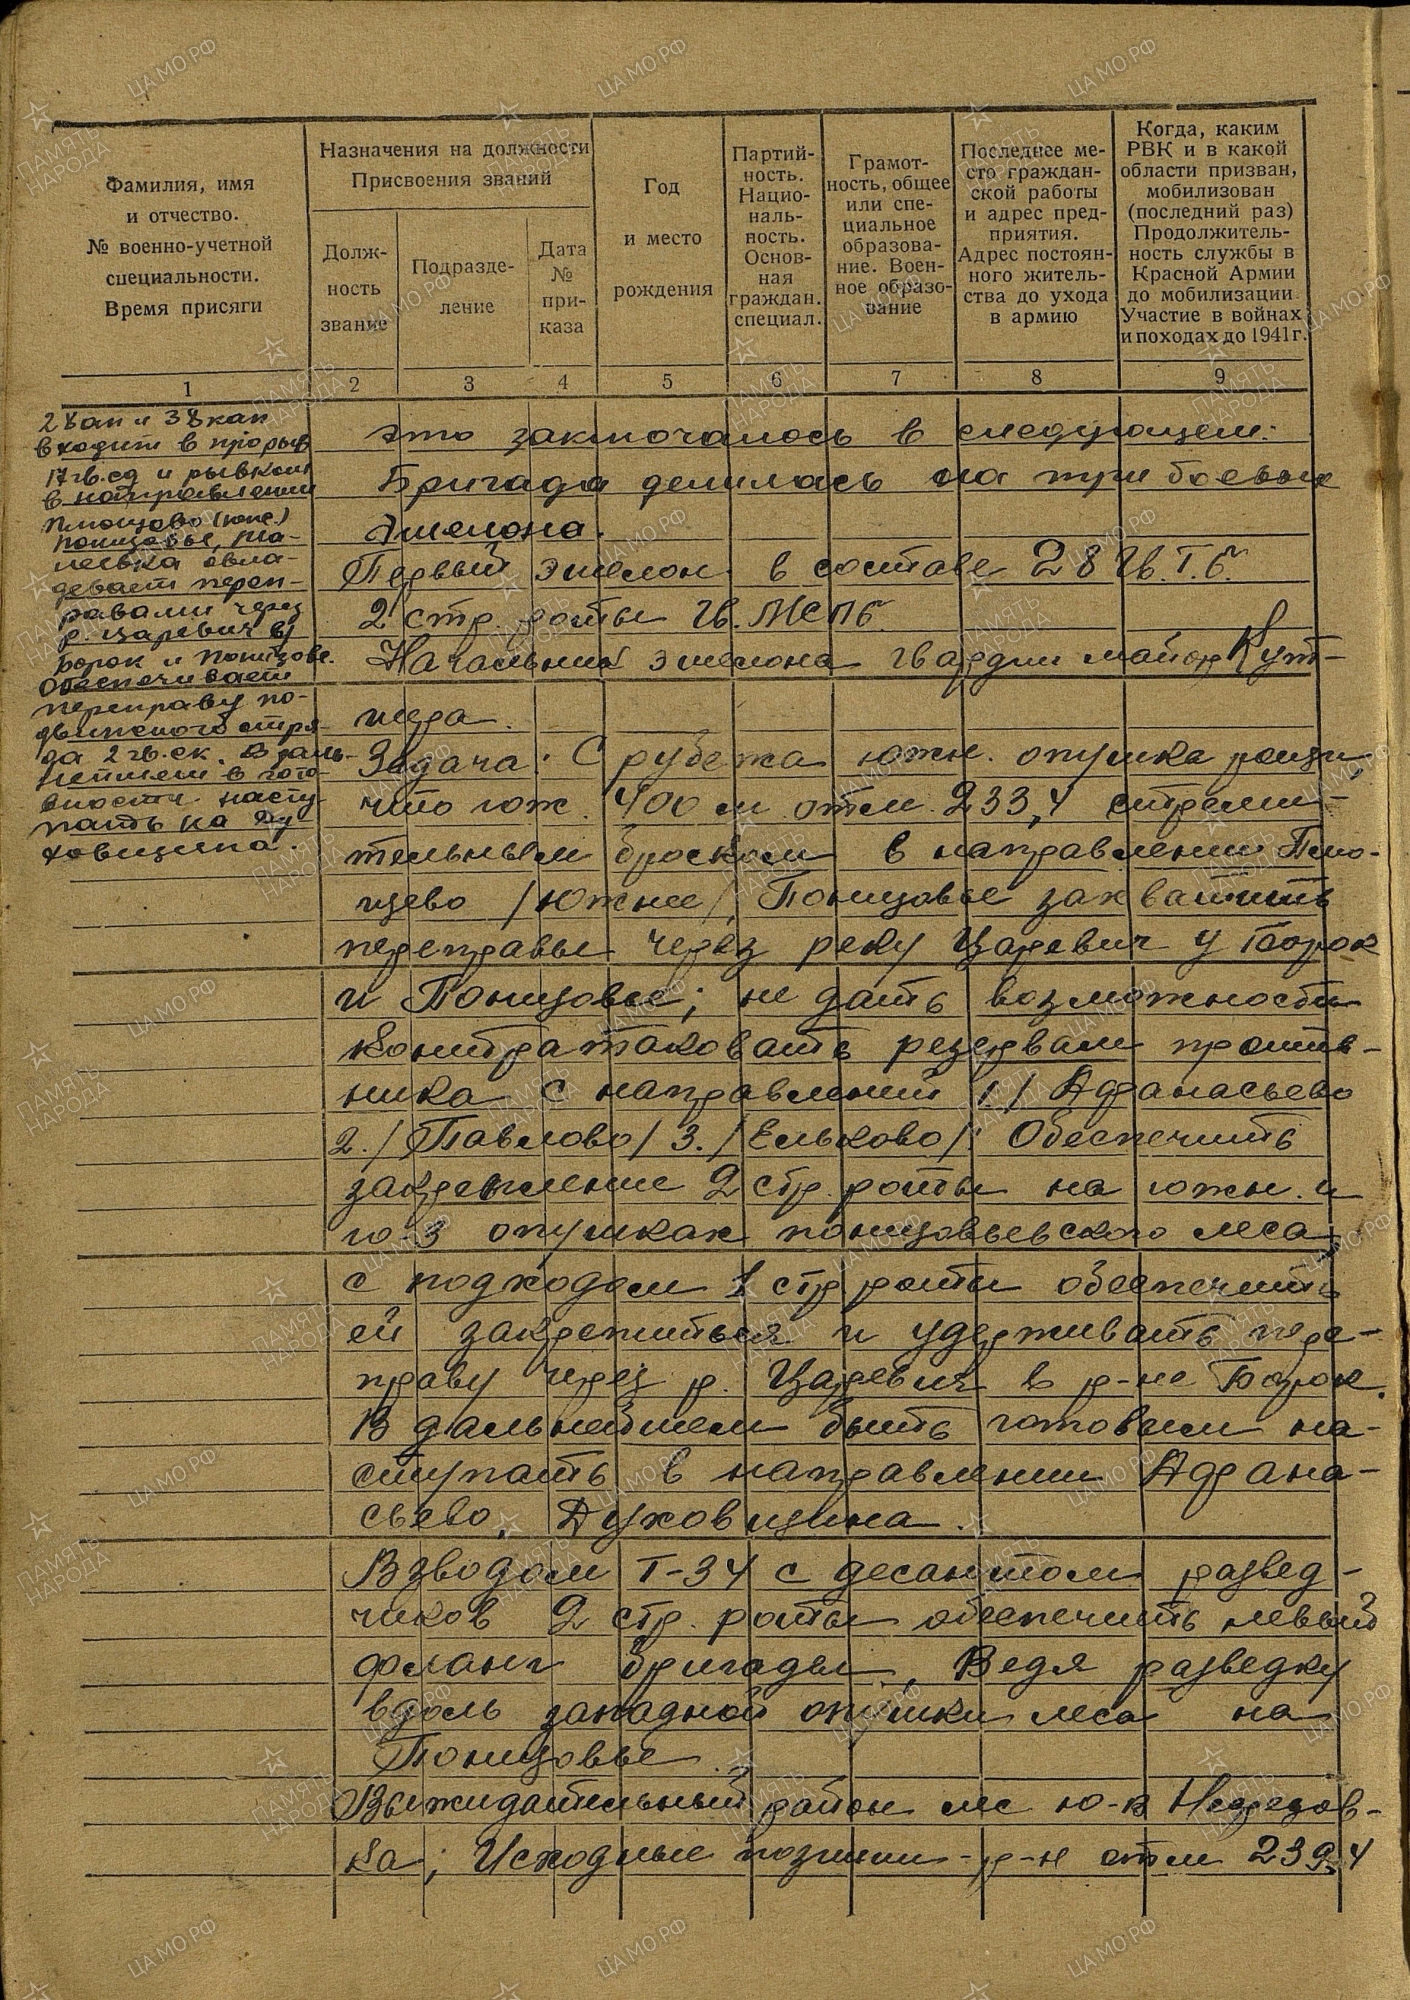 Фамилия, имя
и отчество.
№ военно-учетной
специальности.
Время присяги
Назначения на должности
Присвоения званий
Долж-
ность
звание
Подразде-
ление
Дата
№
при-
каза
Год
и место
рождения
Партий-
ность.
Нацио-
наль-
ность.
Основ-
ная
граждан.
специал.
Грамот-
ность, общее
или спе-
циальное
образова-
ние. Воен-
ное образо-
вание
Последнее ме-
сто граждан-
ской работы
и адрес пред-
приятия.
Адрес постоян-
ного житель-
ства до ухода
в армию
Когда, каким
РВК и в какой
области призван,
мобилизован
(последний раз)
Продолжитель-
ность службы в
Красной Армии
до мобилизации
Участие в войнах
и походах до 1941 г.
1 2 3 4 5 6 7 8 9
входит в прорыв
17 гв.сд и рывком
в направлении
Плющево (юж.)
Понизовье,
овла-
девает переп-
равами через
р. Царевич в
Борок и Понизове.
Обеспечивает
переправу по-
движного отря-
да 2 гв.ск. В даль-
нейшем в гото-
вности насту-
пать на Ду
ховщина.
это заключалось в следующем:
Бригада делилась на три боевых
эшелона.
Первый эшелон в составе 28 Гв.Т.б.
2 стр. роты Гв. МСПБ.
Начальник эшелона гвардии майор
Задача: С рубежа южн. опушка рощи,
что юж. 400 м отм. 233,4 стреми-
тельным броском в направлении Плю-
щево /Южнее/, Понизовье захватить
переправы через реку Царевич у Борок
и Понизовье; не дать возможности
контратаковать резервам против-
ника с направлений 1/ Афанасьево
2./ Павлово/ 3./ Ельково/: Обеспечить
закрепление 2 стр. роты на южн. и
ю-з опушках понизовьевского леса,
с подходом 1 стр роты обеспечить
ей закрепиться и удерживать пере-
праву через р. Царевич в р-не Борок.
В дальнейшем быть готовым на-
ступать в направлении Афана-
сьево, Духовщина.
Взводом Т-34 с десантом развед-
чиков 2 стр. роты обеспечить левый
фланг бригады, Ведя разведку
вдоль западной опушки леса на
Понизовье.
Выжидательный район лес ю-в
ка; Исходные позиции - р-н отм 239,4